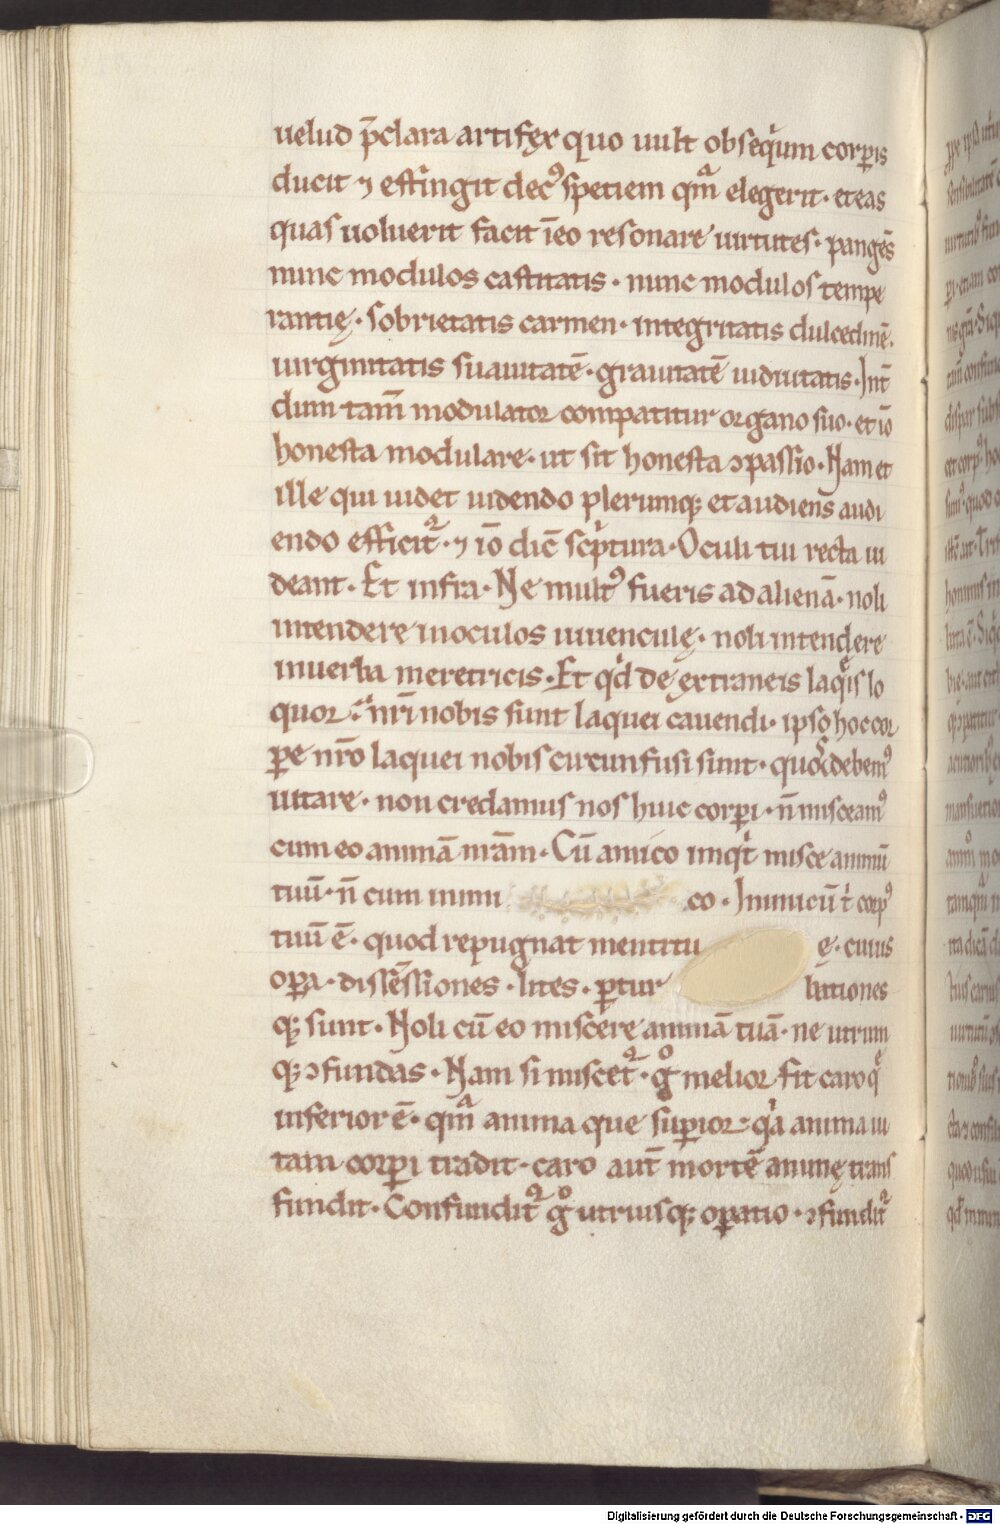 uelud p̄clara artifex quo uult obseq̇um corꝑis
ducit ⁊ effingit decꝰ spetiem qm̄ elegerit · et eas
quas uoluerit facit ī eo resonare uirtutes · pangēs
nunc modulos castitatis · nunc modulos tempe
rantię · sobrietatis carmen · integritatis dulcedinē ·
uirginitatis suauitatē · grauitatē uiduitatis · Int̄
dum tam̄ modulator compatitur organo suo · et iō
honesta modulare · ut sit honesta ↄpassio · Nam et
ille qui uidet uidendo plerumq; et audiens audi
endo efficit᷑ · ⁊ iō dic̄ scͥptura · Oculi tui recta ui
deant · Et infra · Ne multꝰ fueris ad alienā · noli
intendere in oculos iuuenculę · noli intendere
in uerba meretricis · Et qͥd de extraneis laqͥis lo
quor nr̄i nobis sunt laquei cauendi · ipso hoc cor
ꝑe nr̄o laquei nobis circunfusi sunt · quos debemꝰ
uitare · non credamus nos huic corꝑi · n̄ misceamꝰ
cum eo animā nr̄am · Cū amico inqͥt misce animū
tuū · n̄ cum inimi co · Inimicū tͥ corpꝰ
tuū ē · quod repugnat menti tu ę · cuius
oꝑa · dissensiones · lites · ꝑtur bationes
q; sunt · Noli cū eo miscere animā tuā · ne utrum
q; ↄfundas · Nam si miscet᷑ · gͦ melior fit caro q̄
inferior ē · qm̄ anima que suꝑior · qͥa anima ui
tam corꝑi tradit · caro aut̄ mortē animę trans
fundit · Confundit᷑ gͦ utriusq; oꝑatio · ↄfundit᷑
Digitalisierung gefördert durch die Deutsche Forschungsgemeinschaft - DFG